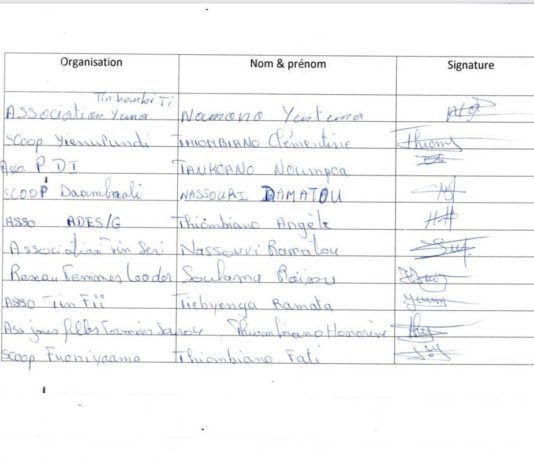 Organisation Nom & prénom Signature
Tin hountoi Ti
Association Yema Namono Yentema
SCOOP THIOMBIANO Clémentine Thiom
Asso PDI TANKOANO
SCOOP NASSOURI DAMATOU
ASSO ADES/G Thiombiano Angèle
Association Tin Seri Nassouri Ramatou
Reseau Femmes Leader Soulama
ASSO Tin Fii Tiebyenga Ramata
Ass jnes filles Thiombiano Honorine
SCOOP Fuoniyaama Thiombiano Fati